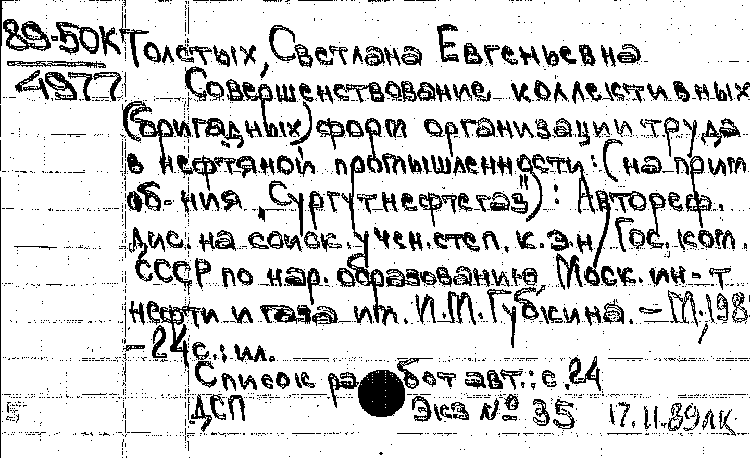 89-50К Толстых, Светлана Евгеньевна
4977 Совершенствование коллективных
(бригадных) форм организации труда
в нефтяной промышленности: (на прим
об-ния "Сургутнефтегаз"): Автореф.
дис. на соиск. учен. степ. к.э.н/ Гос. ком.
СССР по нар. образованию, Моск. ин-т
нефти и газа им. И.М. Губкина. - М., 198
- 24 с.: ил.
Список работ авт.: с. 24
ДСП Экз № 35 17.11.89